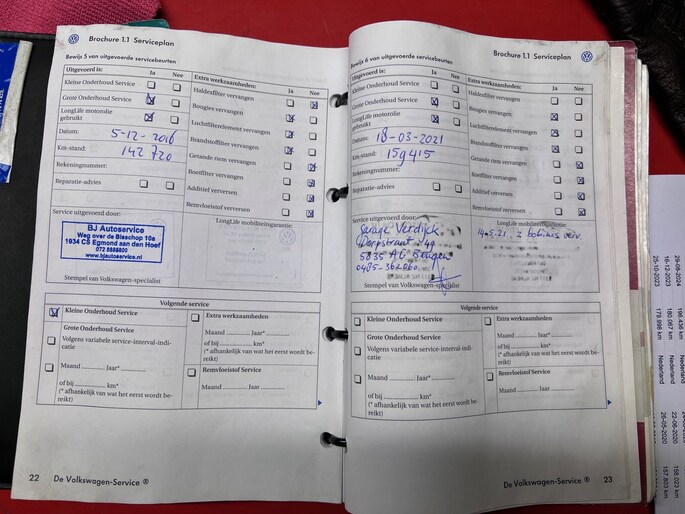 Brochure 1.1 Serviceplan
Bewijs 5 van uitgevoerde servicebeurten
Uitgevoerd is: Ja Nee
Kleine Onderhoud Service
Grote Onderhoud Service
LongLife motorolie
gebruikt
Datum: 5-12-2016
Km-stand: 142 720
Rekeningnummer:
Reparatie-advies
Extra werkzaamheden: Ja Nee
Haldexfilter vervangen
Bougies vervangen
Luchtfilterelement vervangen
Brandstoffilter vervangen
Getande riem vervangen
Roetfilter vervangen
Additief verversen
Remvloeistof verversen
Service uitgevoerd door:
BJ Autoservice
Weg over de Bisschop 10a
1934 CS Egmond aan den Hoef
www.bjautoservice.nl
Stempel van Volkswagen-specialist
LongLife mobiliteitsgarantie:
Volgende service
Kleine Onderhoud Service
Grote Onderhoud Service
Volgens variabele service-interval-indi-
catie
Maand Jaar*
of bij km*
(* afhankelijk van wat het eerst wordt be-
reikt)
Extra werkzaamheden
Maand Jaar*
of bij km*
(* afhankelijk van wat het eerst wordt be-
reikt)
Remvloeistof Service
Maand Jaar
22 De Volkswagen-Service ®
Brochure 1.1 Serviceplan
Bewijs 6 van uitgevoerde servicebeurten
Uitgevoerd is: Ja Nee
Kleine Onderhoud Service
Grote Onderhoud Service
LongLife motorolie
gebruikt
Datum: 18-03-2021
Km-stand: 159415
Rekeningnummer:
Reparatie-advies
Extra werkzaamheden: Ja Nee
Haldexfilter vervangen
Bougies vervangen
Luchtfilterelement vervangen
Brandstoffilter vervangen
Getande riem vervangen
Roetfilter vervangen
Additief verversen
Remvloeistof verversen
Service uitgevoerd door:
Garage Verdijk
Dorpstraat
5835 AG Beugen
Stempel van Volkswagen-specialist
LongLife mobiliteitsgarantie:
14.5.21.
Volgende service
Kleine Onderhoud Service
Grote Onderhoud Service
Volgens variabele service-interval-indi-
catie
Maand Jaar*
of bij km*
(* afhankelijk van wat het eerst wordt be-
reikt)
Extra werkzaamheden
Maand Jaar*
of bij km*
(* afhankelijk van wat het eerst wordt be-
reikt)
Remvloeistof Service
Maand Jaar
De Volkswagen-Service ® 23
29-08-2024 196.436 km Nederland
16-12-2023 180.067 km Nederland 22-06-2020 158.023 km
25-10-2023 178.998 km Nederland 26-05-2020 157.803 km